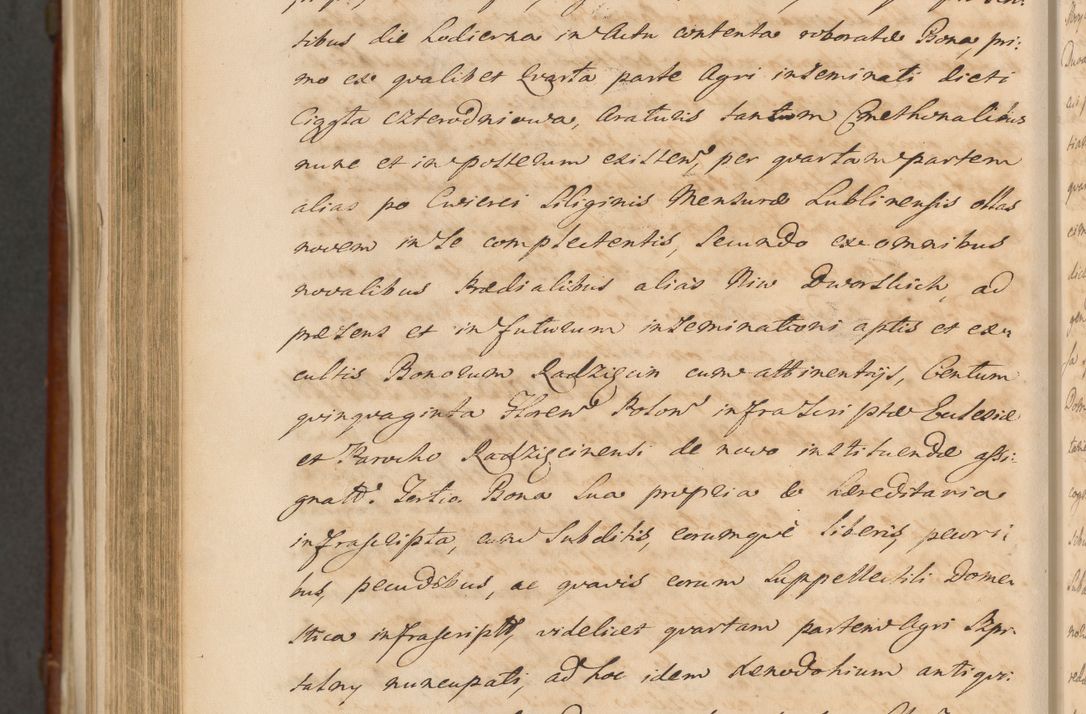 tibus die hodierna in Actu contenta roboratæ Bona, pri:
mo ex qvalibet Qvarta parte Agri inseminati dicti
Ciggła czterodniowa, Araturis tantum Cmethonalibus
nunc et in posterum existen: per qvartam partem
alias po Cwierci Siliginis Mensuræ Lublinensis ollas
novem in se complectentis, Secundo ex omnibus
novalibus Prædialibus alias Niw Dworskich, ad
præsens et in futurum inseminationi aptis et ex:
cultis Bonorum Radzięcin cum attinentijs, Centum
qvinqvaginta Floren: Polon: infrascriptæ Ecclesiæ
et Parocho Radzięcinensi de novo instituendæ assi:
gnatt: Tertio Bona sua propria & hæreditaria
infrascripta, cum Subditis, eorumqve liberis, pecori:
bus, pecudibus, ac qvavis eorum Suppellectili Dome:
stica infrascriptt, videlicet qvartam partem Agri Szpi:
talny nuncupati, ad hoc idem Xenodohium antiqvi: